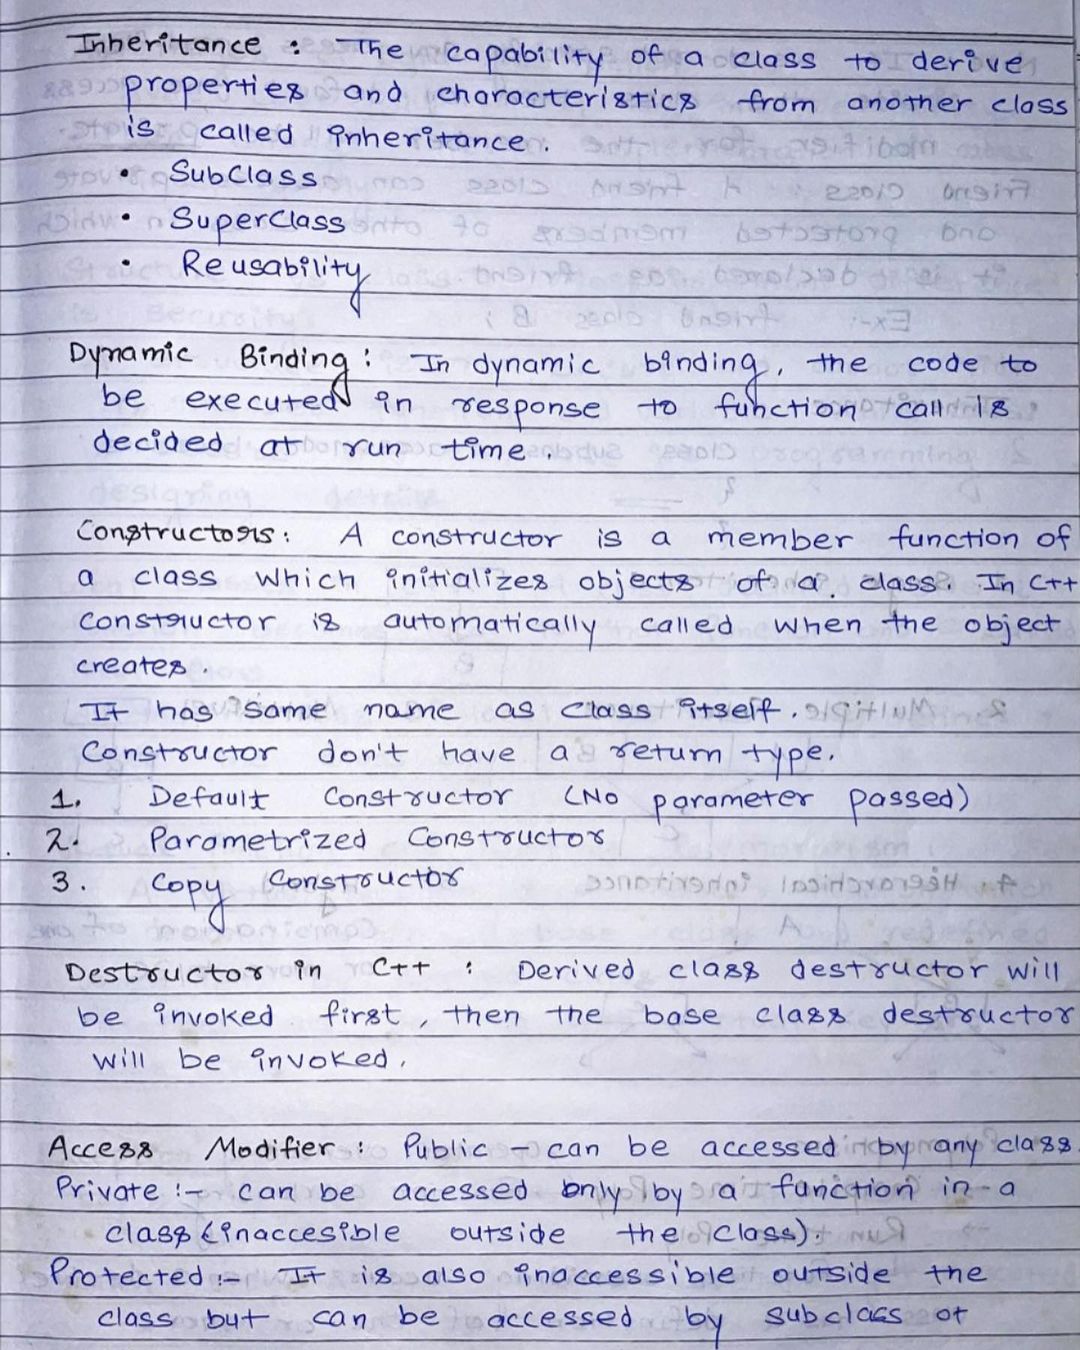 Inheritance : The capability of a class to derive
properties and characteristics from another class
is called inheritance.
• SubClass
• SuperClass
• Reusability
Dynamic Binding : In dynamic binding, the code to
be executed in response to function call is
decided at run time.
Constructors : A constructor is a member function of
a class which initializes objects of a class. In C++
Constructor is automatically called when the object
creates.
It has same name as class itself.
Constructor don't have a return type.
1. Default Constructor (No parameter passed)
2. Parametrized Constructor
3. Copy Constructor
Destructor in C++ : Derived class destructor will
be invoked first, then the base class destructor
will be invoked.
Access Modifier : Public - can be accessed by any class
Private :- can be accessed only by a function in a
class (inaccesible outside the class).
Protected :- It is also inaccessible outside the
class but can be accessed by subclass of